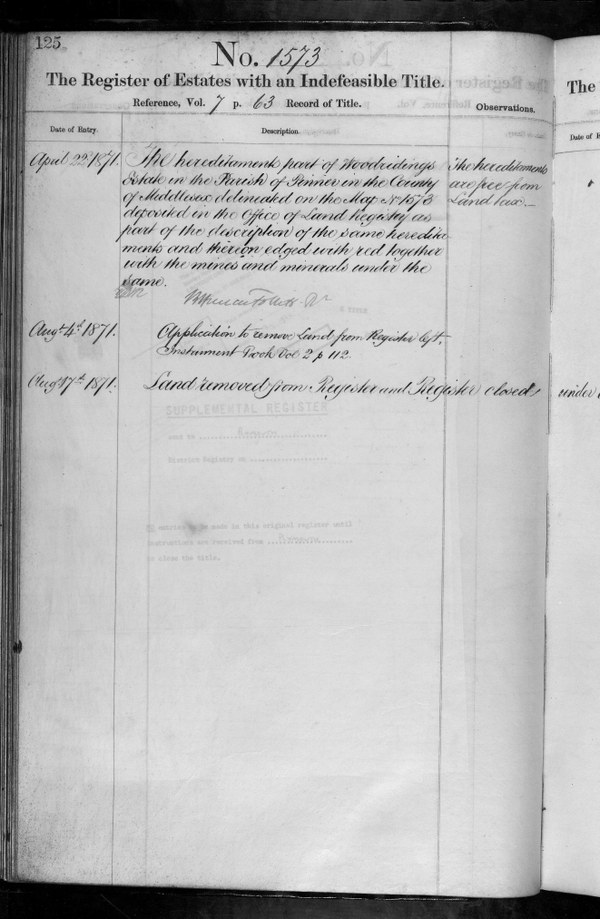 125
No. 1573
The Register of Estates with an Indefeasible Title.
Reference, Vol. 7 p. 63 Record of Title.
Observations.
Date of Entry.
Description.
April 22nd 1871.
The hereditaments part of Woodridings
Estate in the Parish of Pinner in the County
of Middlesex delineated on the Map No 1573
deposited in the Office of Land Registry as
part of the description of the same heredita
ments and thereon edged with red together
with the mines and minerals under the
same.
The hereditaments
are free from
Land tax.
Augt 4th 1871.
Application to remove Land from Register left,
Instrument Book Vol 2 p 112.
Augt 17th 1871.
Land removed from Register and Register closed
SUPPLEMENTAL REGISTER
District Registry on
entries to be made in this original register until
instructions are received from
to close the title.
The
Date of E
under